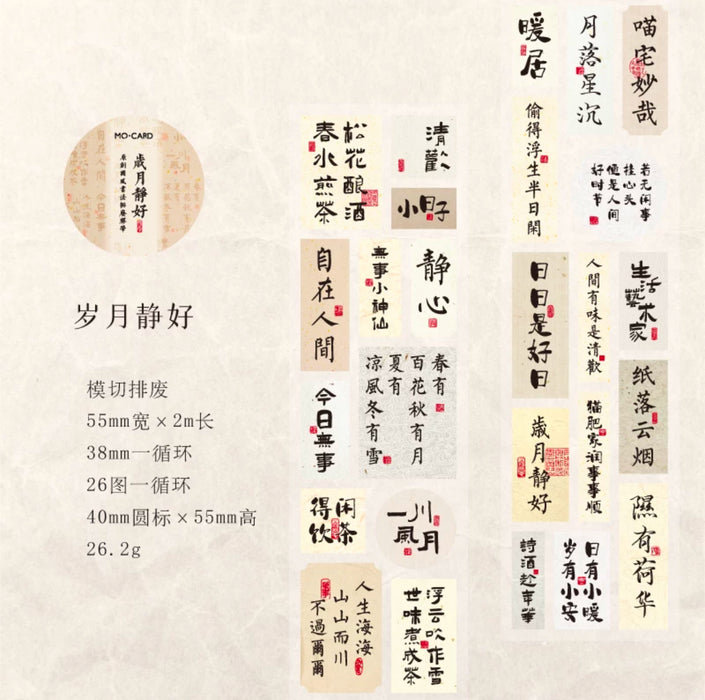 MO·CARD
歲月靜好
岁月静好
模切排废
55mm宽×2m长
38mm一循环
26图一循环
40mm圆标×55mm高
26.2g
松花酿酒
春水煎茶
清歡
小日子
自在人間
無事小神仙
静心
春有
百花秋有月
夏有
凉風冬有雪
今日無事
闲茶
得饮
一川風月
人生海海
山山而川
不過爾爾
浮云吹作雪
世味煮成茶
暖居
月落星沉
喵宅妙哉
偷得浮生半日閑
若无闲事
挂心头
便是人间
好时节
日日是好日
人間有味是清歡
生活藝术家
纸落云烟
歲月静好
猫肥家润事事順
隰有荷华
詩酒趁年華
日有小暖
岁有小安